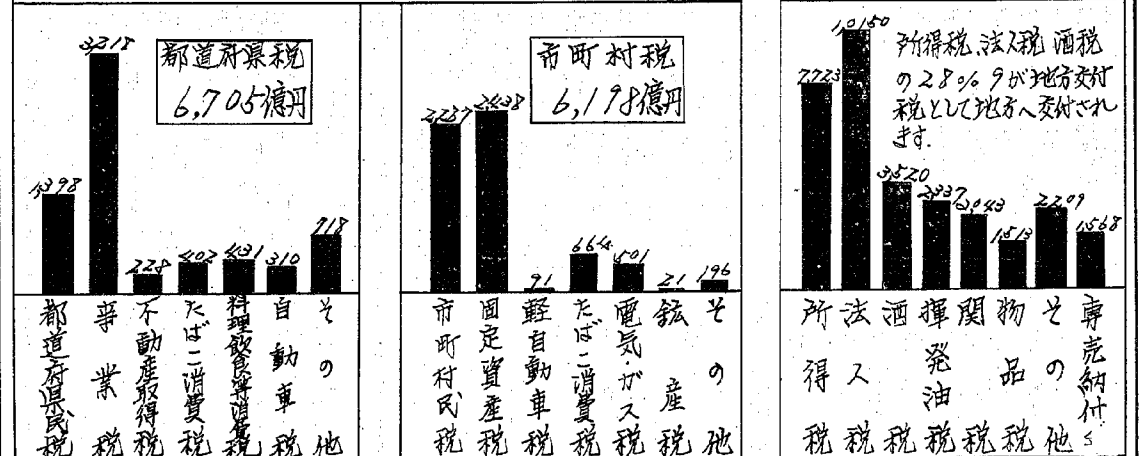 都道府県税
6,705億円
1,398
3,318
228
402
431
310
718
都道府県民税
事業税
不動産取得税
たばこ消費税
料理飲食等消費税
自動車税
その他
市町村税
6,198億円
2287
2438
91
664
501
21
196
市町村民税
固定資産税
軽自動車税
たばこ消費税
電気・ガス税
鉱産税
その他
所得税、法人税 酒税
の28% 9が地方交付
税として地方へ交付され
ます.
7723
1,0150
3,520
2,337
2,043
1,513
2209
1,568
所得税
法人税
酒税
揮発油税
関税
物品税
その他
専売納付